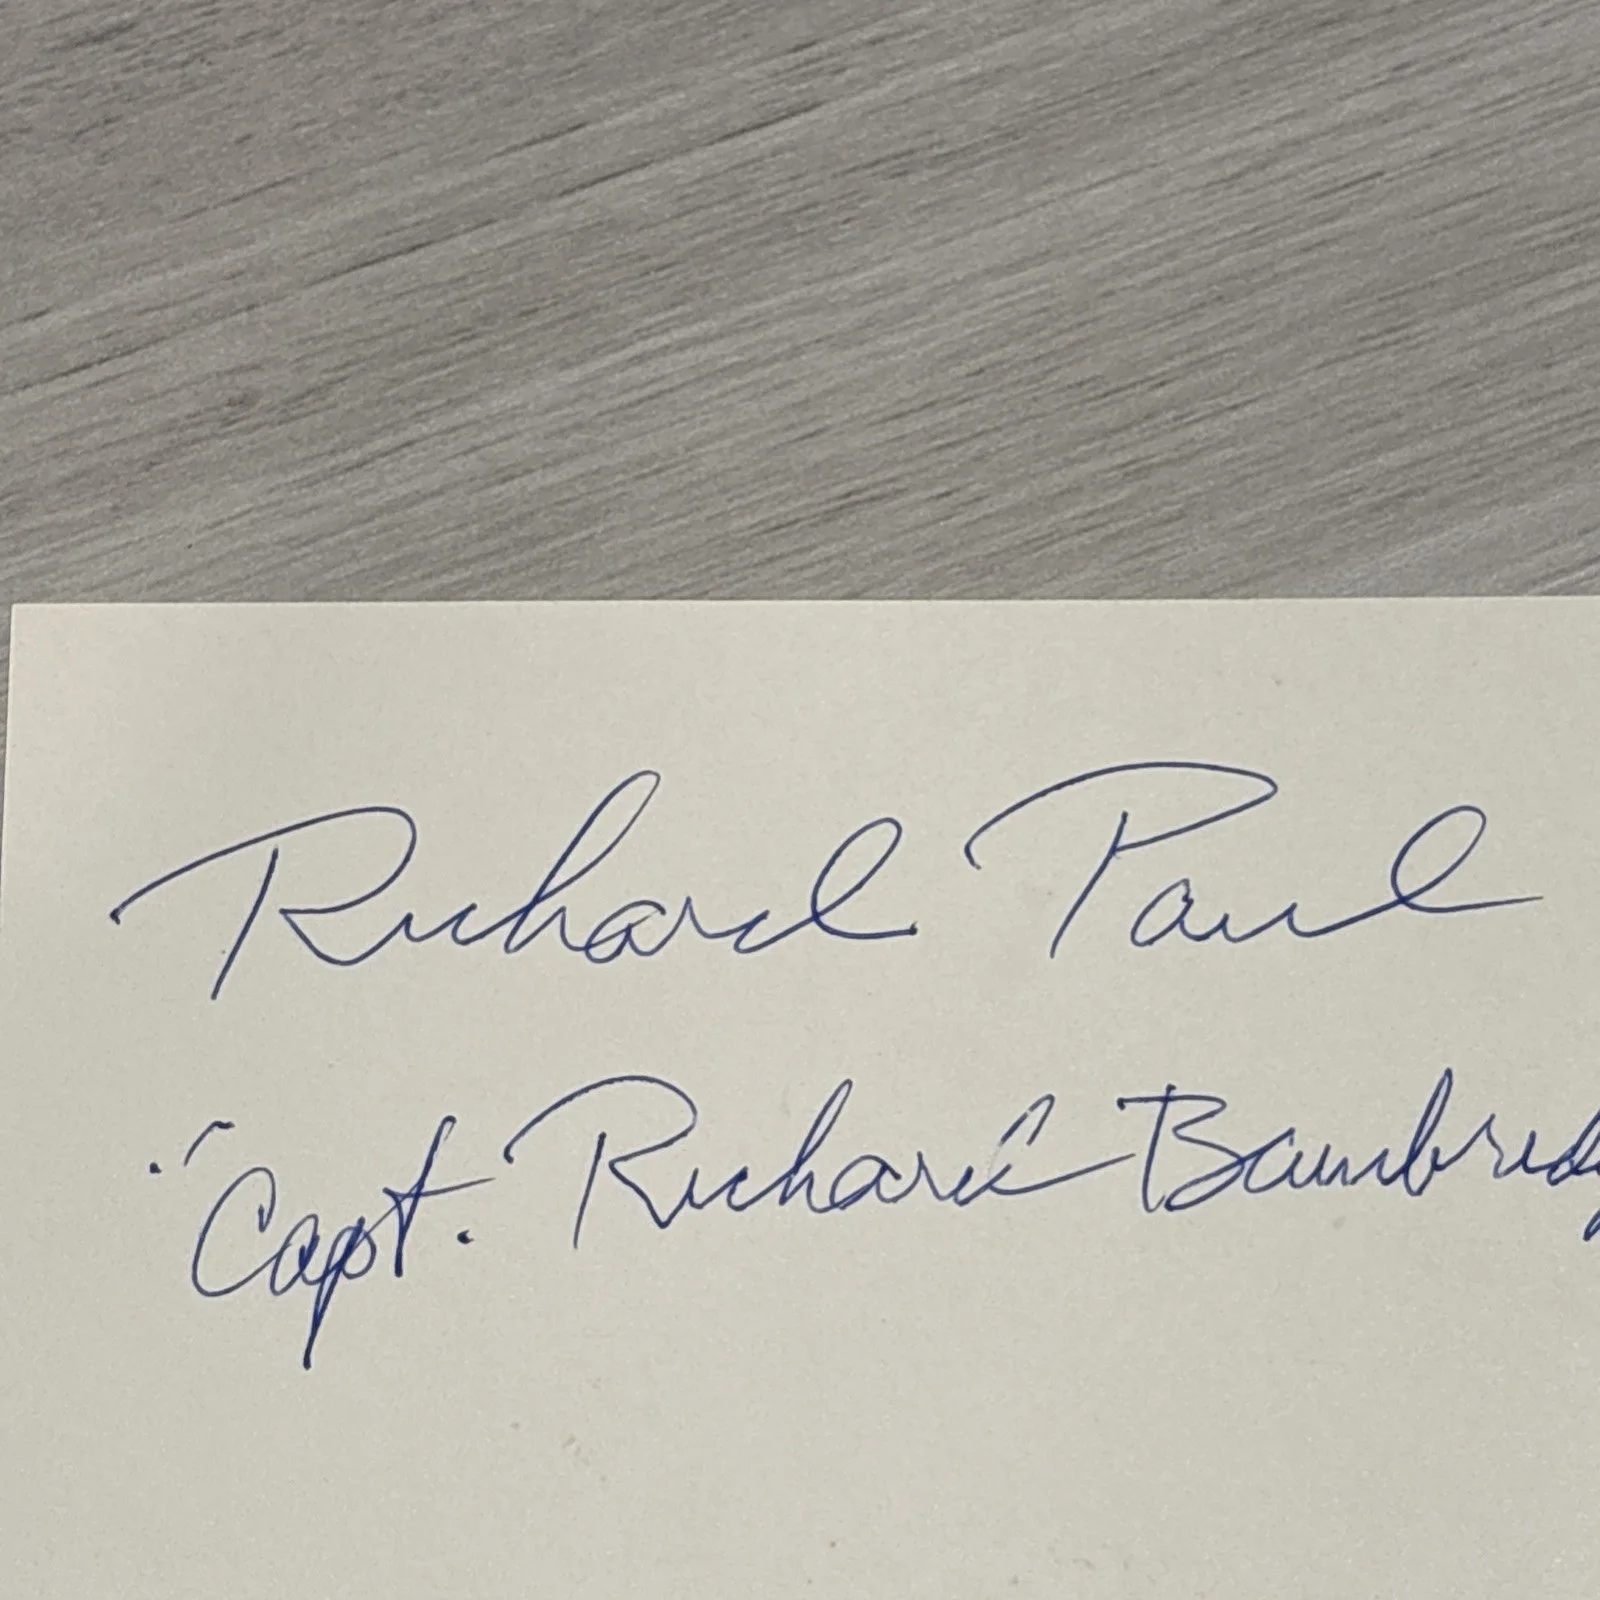 Richard Paul
"Capt. Richard Bainbridg